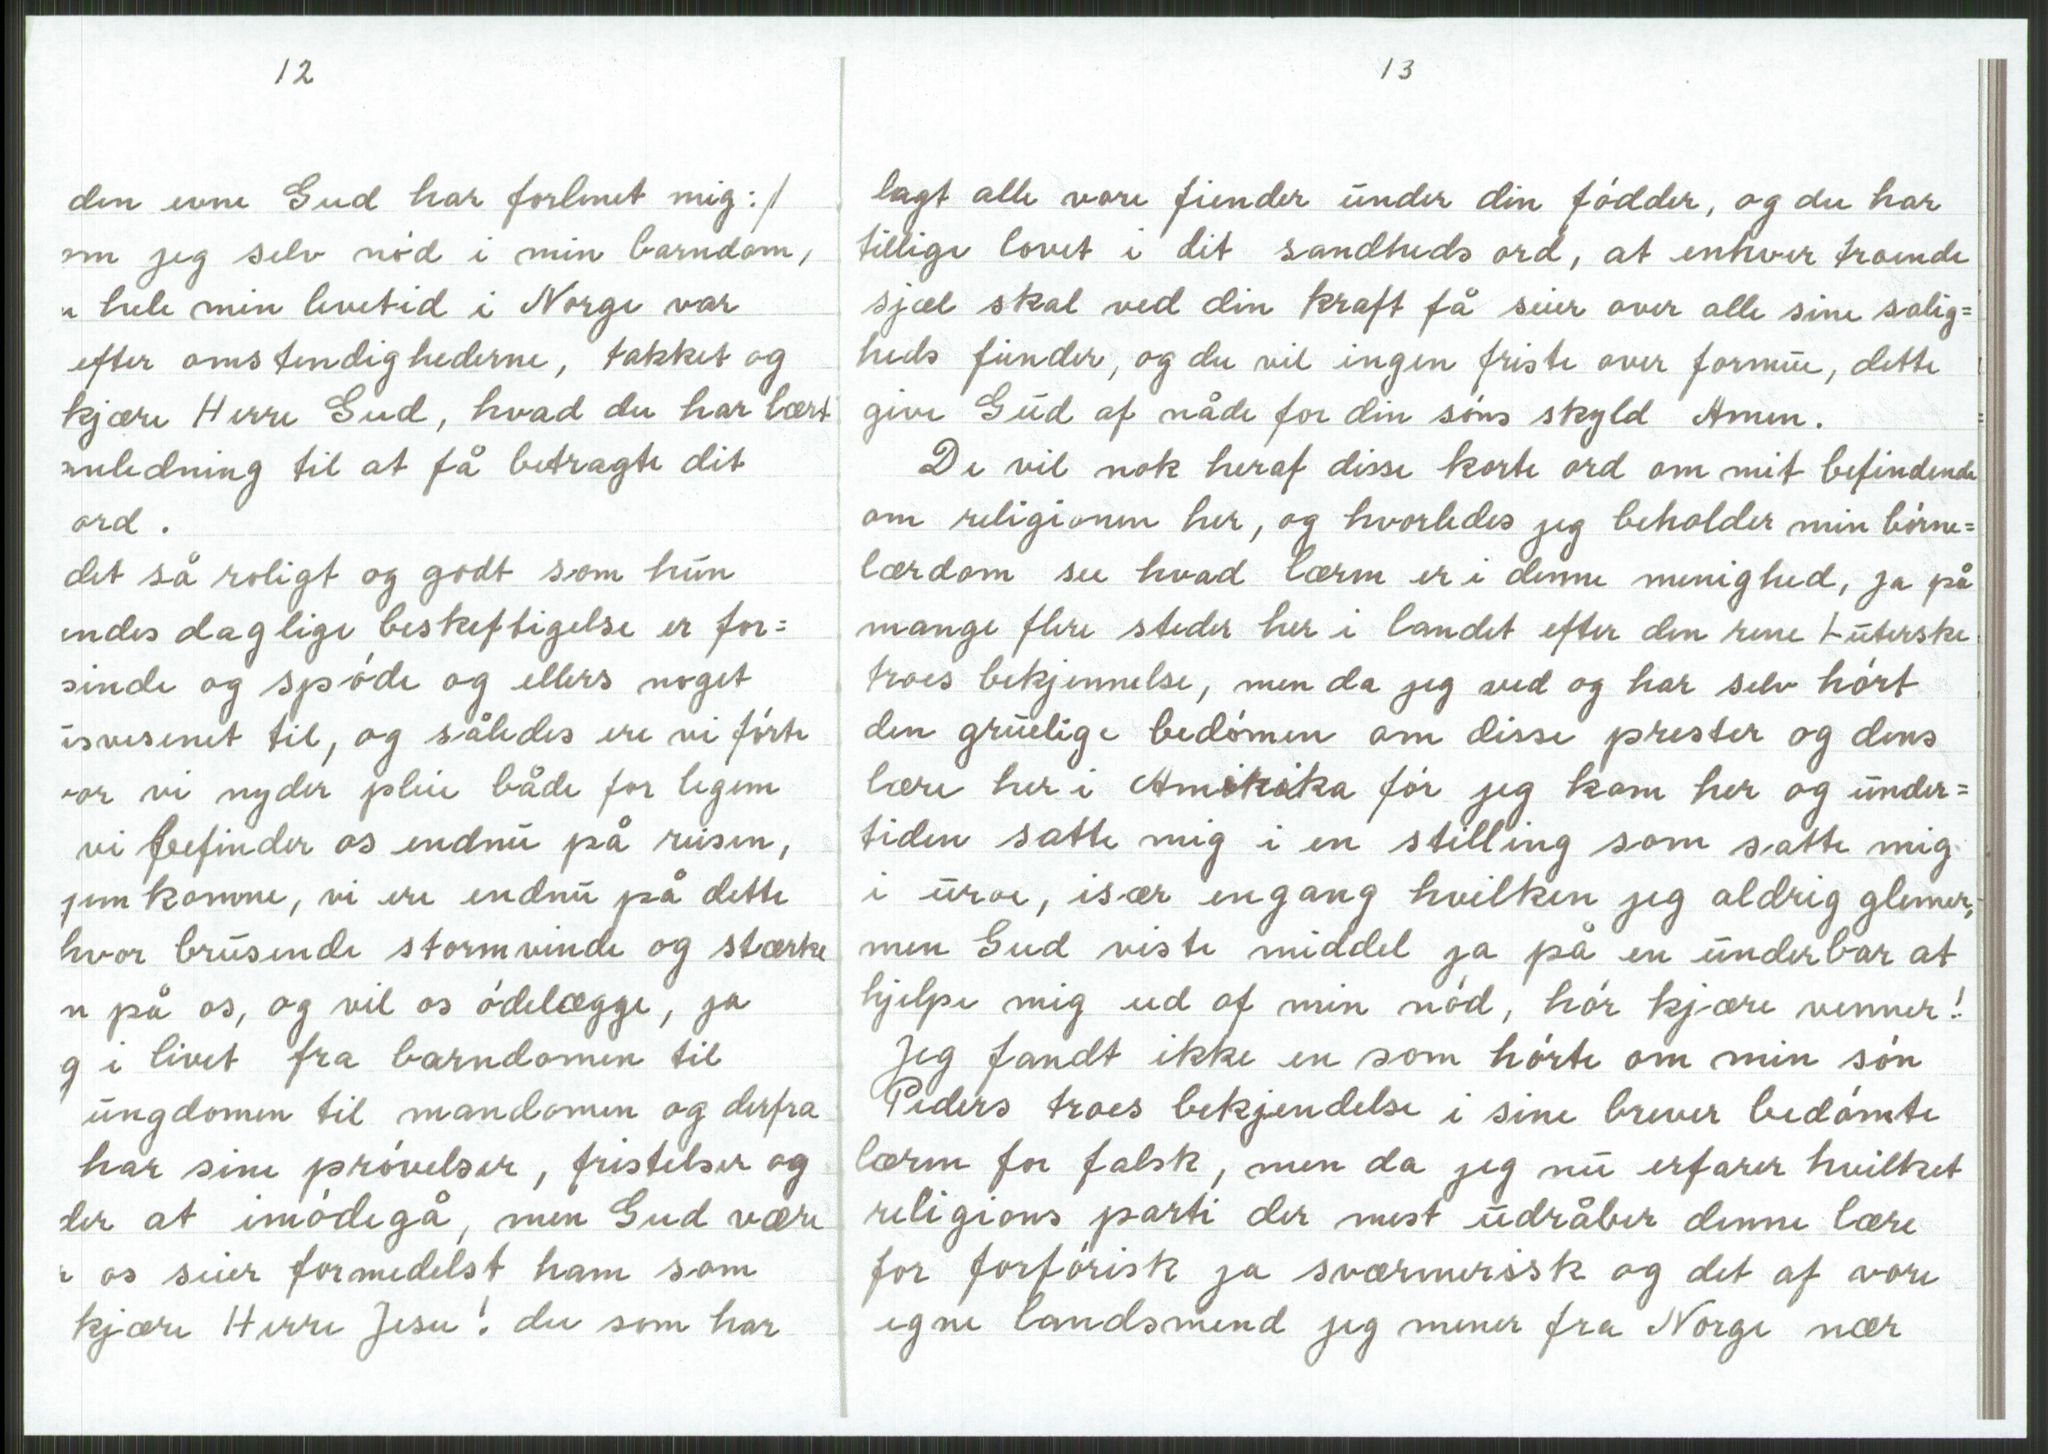 12
den evne Gud har forlenet mig:/
om jeg selv nód i min barndom,
hele min levetid i Norge var
efter omstendighederne, takket og
kjære Herre Gud, hvad du har lært
anledning til at få betragte dit
ord.
det så roligt og godt som hun
endes daglige beskeftigelse er for=
sinde og spóde og ellers noget
usvesenet til, og således ere vi fórte
vor vi nyder pleie både for legem
vi befinder os endnu på reisen,
jem komne, vi ere endnu på dette
hvor brusende stormvinde og stærke
n på os, og vil os ódelægge, ja
g i livet fra barndomen til
ungdomen til mandomen og derfra
har sine próvelser, fristelser og
der at imódegå, men Gud være
os seier formedelst ham som
kjære Herre Jesu! du som har
13
lagt alle vore fiender under din fódder, og du har
tillige lovet i dit sandheds ord, at enhver troende
sjæl skal ved din kraft få seier over alle sine salig=
heds fiender, og du vil ingen friste over formue, dette
give Gud af nåde for din sóns skyld Amen.
De vil nok heraf disse korte ord om mit befindende
om religionen her, og hvorledes jeg beholder min bórne=
lærdom see hvad lærm er i denne menighed, ja på
mange flere steder her i landet efter den rene Luterske
troes bekjennelse, men da jeg ved og har selv hórt
den gruelige bedómen om disse prester og dens
lære her i Amerika fór jeg kom her og under=
tiden satte mig i en stilling som satte mig
i uroe, især engang hvilken jeg aldrig glemer,
men Gud viste middel ja på en underbar at
hjelpe mig ud af min nód, hór kjære venner!
Jeg fandt ikke en som hórte om min són
Peders troes bekjendelse i sine brever bedómte
lærm for falsk, men da jeg nu erfarer hvilket
religions parti der mest udråber denne lære
for forfórisk ja sværmerissk og det af vore
egne landsmend jeg mener fra Norge nær